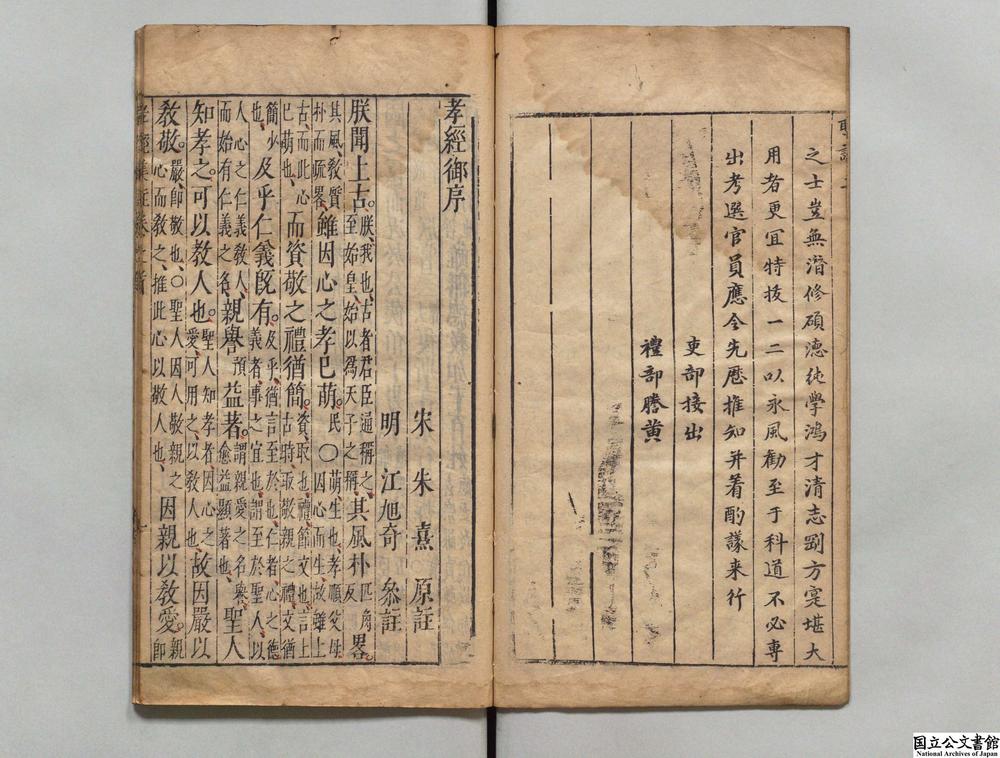 聖諭
之士豈無潛修碩德絩學鴻才清志剛方寔堪大
用者更宜特拔一二以永風勸至于科道不必專
出考選官員應令先歷推知并着酌議来行
吏部接出
禮部謄黄
孝經御序
宋 朱熹 原註
明 江旭奇 叅註
朕聞上古。朕、我也古者君臣通稱之、至始皇、始以爲天子之稱、其風朴匹角反畧。
其風、敎質朴而疏畧、雖因心之孝已萌。民〇萌生也、孝順父母因心而生、故雖上
古、而此心已萌也、而資敬之禮猶簡。資、取也、禮、節文也、言上古時、取敬親之禮文猶
簡少也、及乎仁義旣有。及乎猶言至於也、仁者心之德義者、事之宜也、謂至於聖人以
人心之仁義敎人、而始有仁義之名、親譽預益著。謂親愛之名譽、愈益顯著也、聖人
知孝之可以敎人也。聖人知孝者、因心之愛、可用之、以敎人也、故因嚴以
敎敬。嚴、即敬也、〇聖人因人敬親之心而敎之、推此心以敬人也、因親以敎愛。親即
孝經集註
國立公文書館
National Archives of Japan